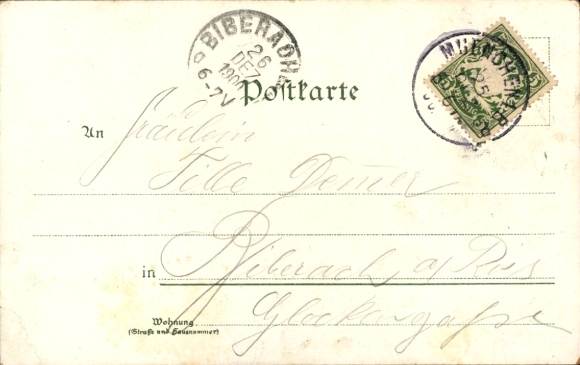 BIBERACH
26
DEZ
190
6-7V
MUENCHEN
25
Postkarte
An Fräulein
Tille Demer
in Biberach a/Riss
Wohnung
(Straße und Hausnummer)
Glockengasse